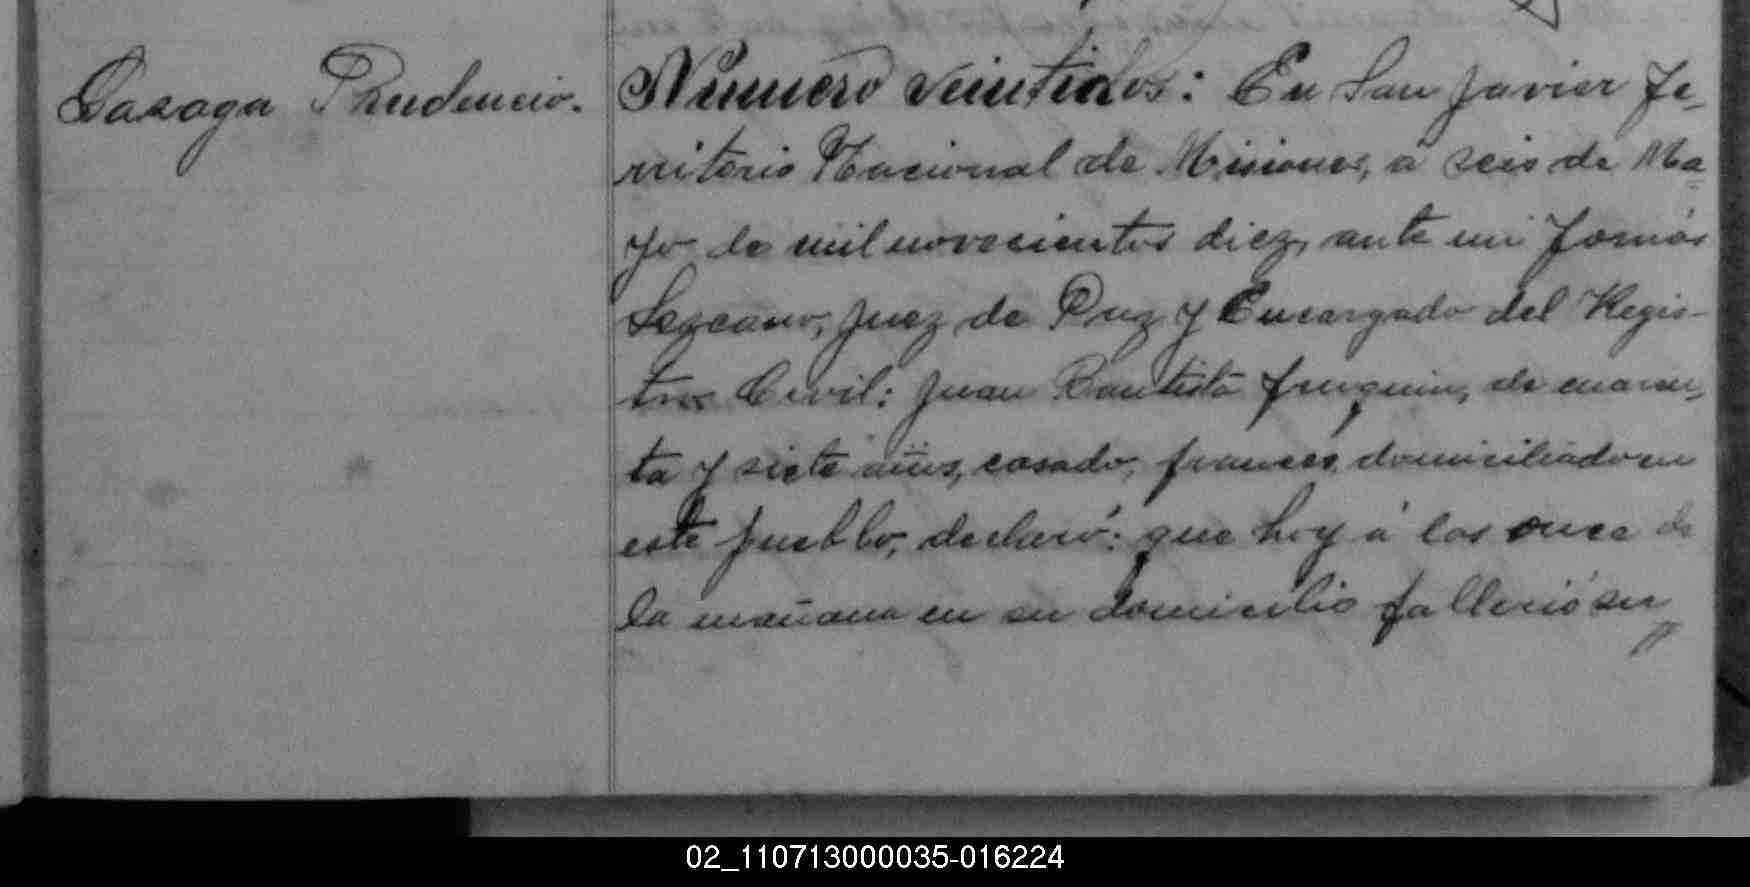 Prudencio.
Numero veintidos: En San Javier Te-
rritorio Nacional de Misiones, á seis de Ma-
yo de mil novecientos diez, ante mi Tomás
Lezcano, Juez de Paz y Encargado del Regis-
tro Civil: Juan Bautista de cuaren-
ta y siete años, casado, francés, domiciliado en
este pueblo, declaró: que hoy á las once de
la mañana en su domicilio falleció su
02_110713000035-016224